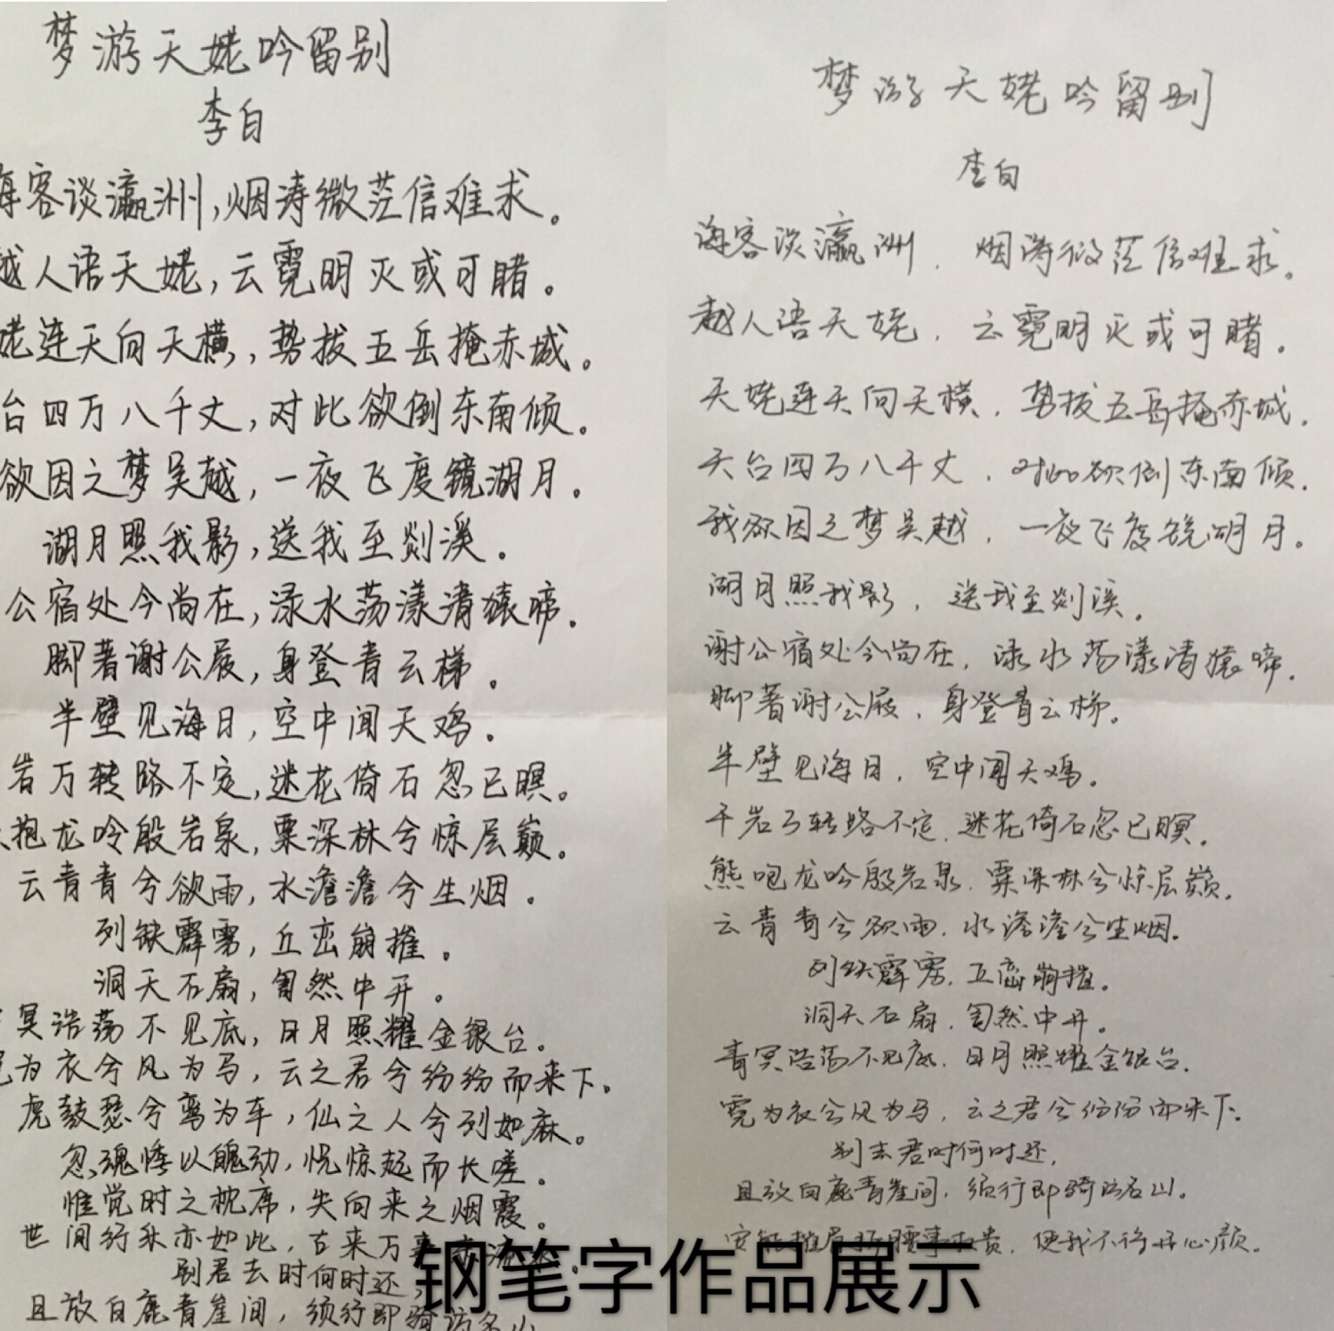 梦游天姥吟留别
李白
海客谈瀛洲,烟涛微茫信难求。
越人语天姥,云霓明灭或可睹。
姥连天向天横,势拔五岳掩赤城。
台四万八千丈,对此欲倒东南倾。
欲因之梦吴越,一夜飞度镜湖月。
湖月照我影,送我至剡溪。
公宿处今尚在,渌水荡漾清猿啼。
脚著谢公屐,身登青云梯。
半壁见海日,空中闻天鸡。
岩万转路不定,迷花倚石忽已暝。
咆龙吟殷岩泉,栗深林兮惊层巅。
云青青兮欲雨,水澹澹兮生烟。
列缺霹雳,丘峦崩摧。
洞天石扇,訇然中开。
冥浩荡不见底,日月照耀金银台。
为衣兮风为马,云之君兮纷纷而来下。
虎鼓瑟兮鸾为车,仙之人兮列如麻。
忽魂悸以魄动,恍惊起而长嗟。
惟觉时之枕席,失向来之烟霞。
世间行乐亦如此,古来万
别君去时何时还,
且放白鹿青崖间,须行即骑访名山
梦游天姥吟留别
李白
海客谈瀛洲,烟涛微茫信难求。
越人语天姥,云霓明灭或可睹。
天姥连天向天横,势拔五岳掩赤城。
天台四万八千丈,对此欲倒东南倾。
我欲因之梦吴越,一夜飞度镜湖月。
湖月照我影,送我至剡溪。
谢公宿处今尚在,渌水荡漾清猿啼。
脚著谢公屐,身登青云梯。
半壁见海日,空中闻天鸡。
千岩万转路不定,迷花倚石忽已暝。
熊咆龙吟殷岩泉,栗深林兮惊层巅。
云青青兮欲雨,水澹澹兮生烟。
列缺霹雳,丘峦崩摧。
洞天石扇,訇然中开。
青冥浩荡不见底,日月照耀金银台。
霓为衣兮风为马,云之君兮纷纷而来下。
别去君时何时还,
且放白鹿青崖间,须行即骑访名山。
安能摧眉折腰事权贵,使我不得开心颜。
钢笔字作品展示